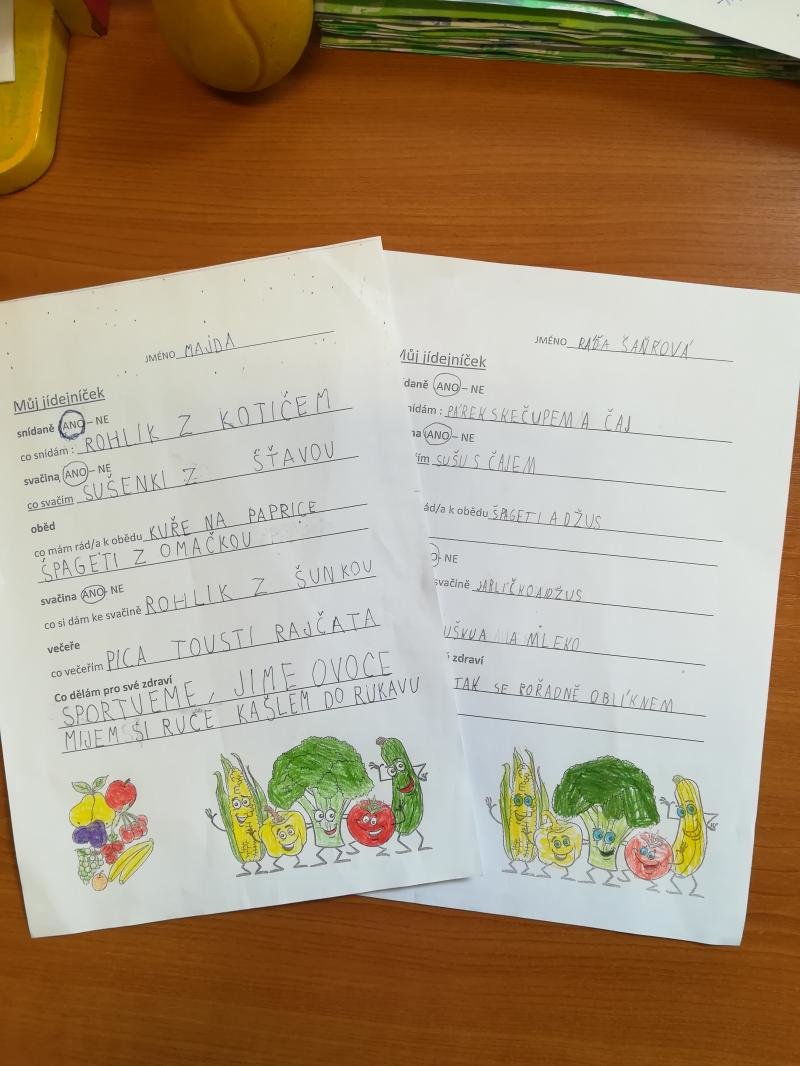 JMÉNO MAJDA
Můj jídelníček
snídaně ANO – NE
co snídám : ROHLIK Z KOTIČEM
svačina ANO – NE
co svačím SUŠENKI Z ŠŤAVOU
oběd
co mám rád/a k obědu KUŘE NA PAPRICE
ŠPAGETI Z OMAČKOU
svačina ANO – NE
co si dám ke svačině ROHLIK Z ŠUNKOU
večeře
co večeřím PICA TOUSTI RAJČATA
Co dělám pro své zdraví
SPORTVEME, JIME OVOCE
MIJEM SI RUCE KAŠLEM DO RUKAVU
JMÉNO ŠAŇROVÁ
Můj jídelníček
daně ANO – NE
nídám : PÁREK SKEČUPEM A ČAJ
na ANO – NE
ím SUŠU S ČAJEM
ád/a k obědu ŠPAGETI A DŽUS
– NE
svačině JABLÍČKO A DŽUS
UŠKU A MLEKO
é zdraví
TAK SE POŘADNĚ OBLÍKNEM